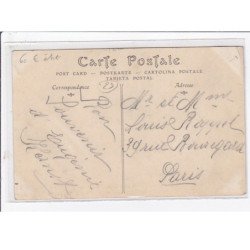 Carte Postale
POST CARD - POSTKARTE - CARTOLINA POSTALE
TARJETA POSTAL
Correspondance
Adresse
Bon
Souvenir
d'Eugénie
Mr et Mme
Louis
39 rue
Paris